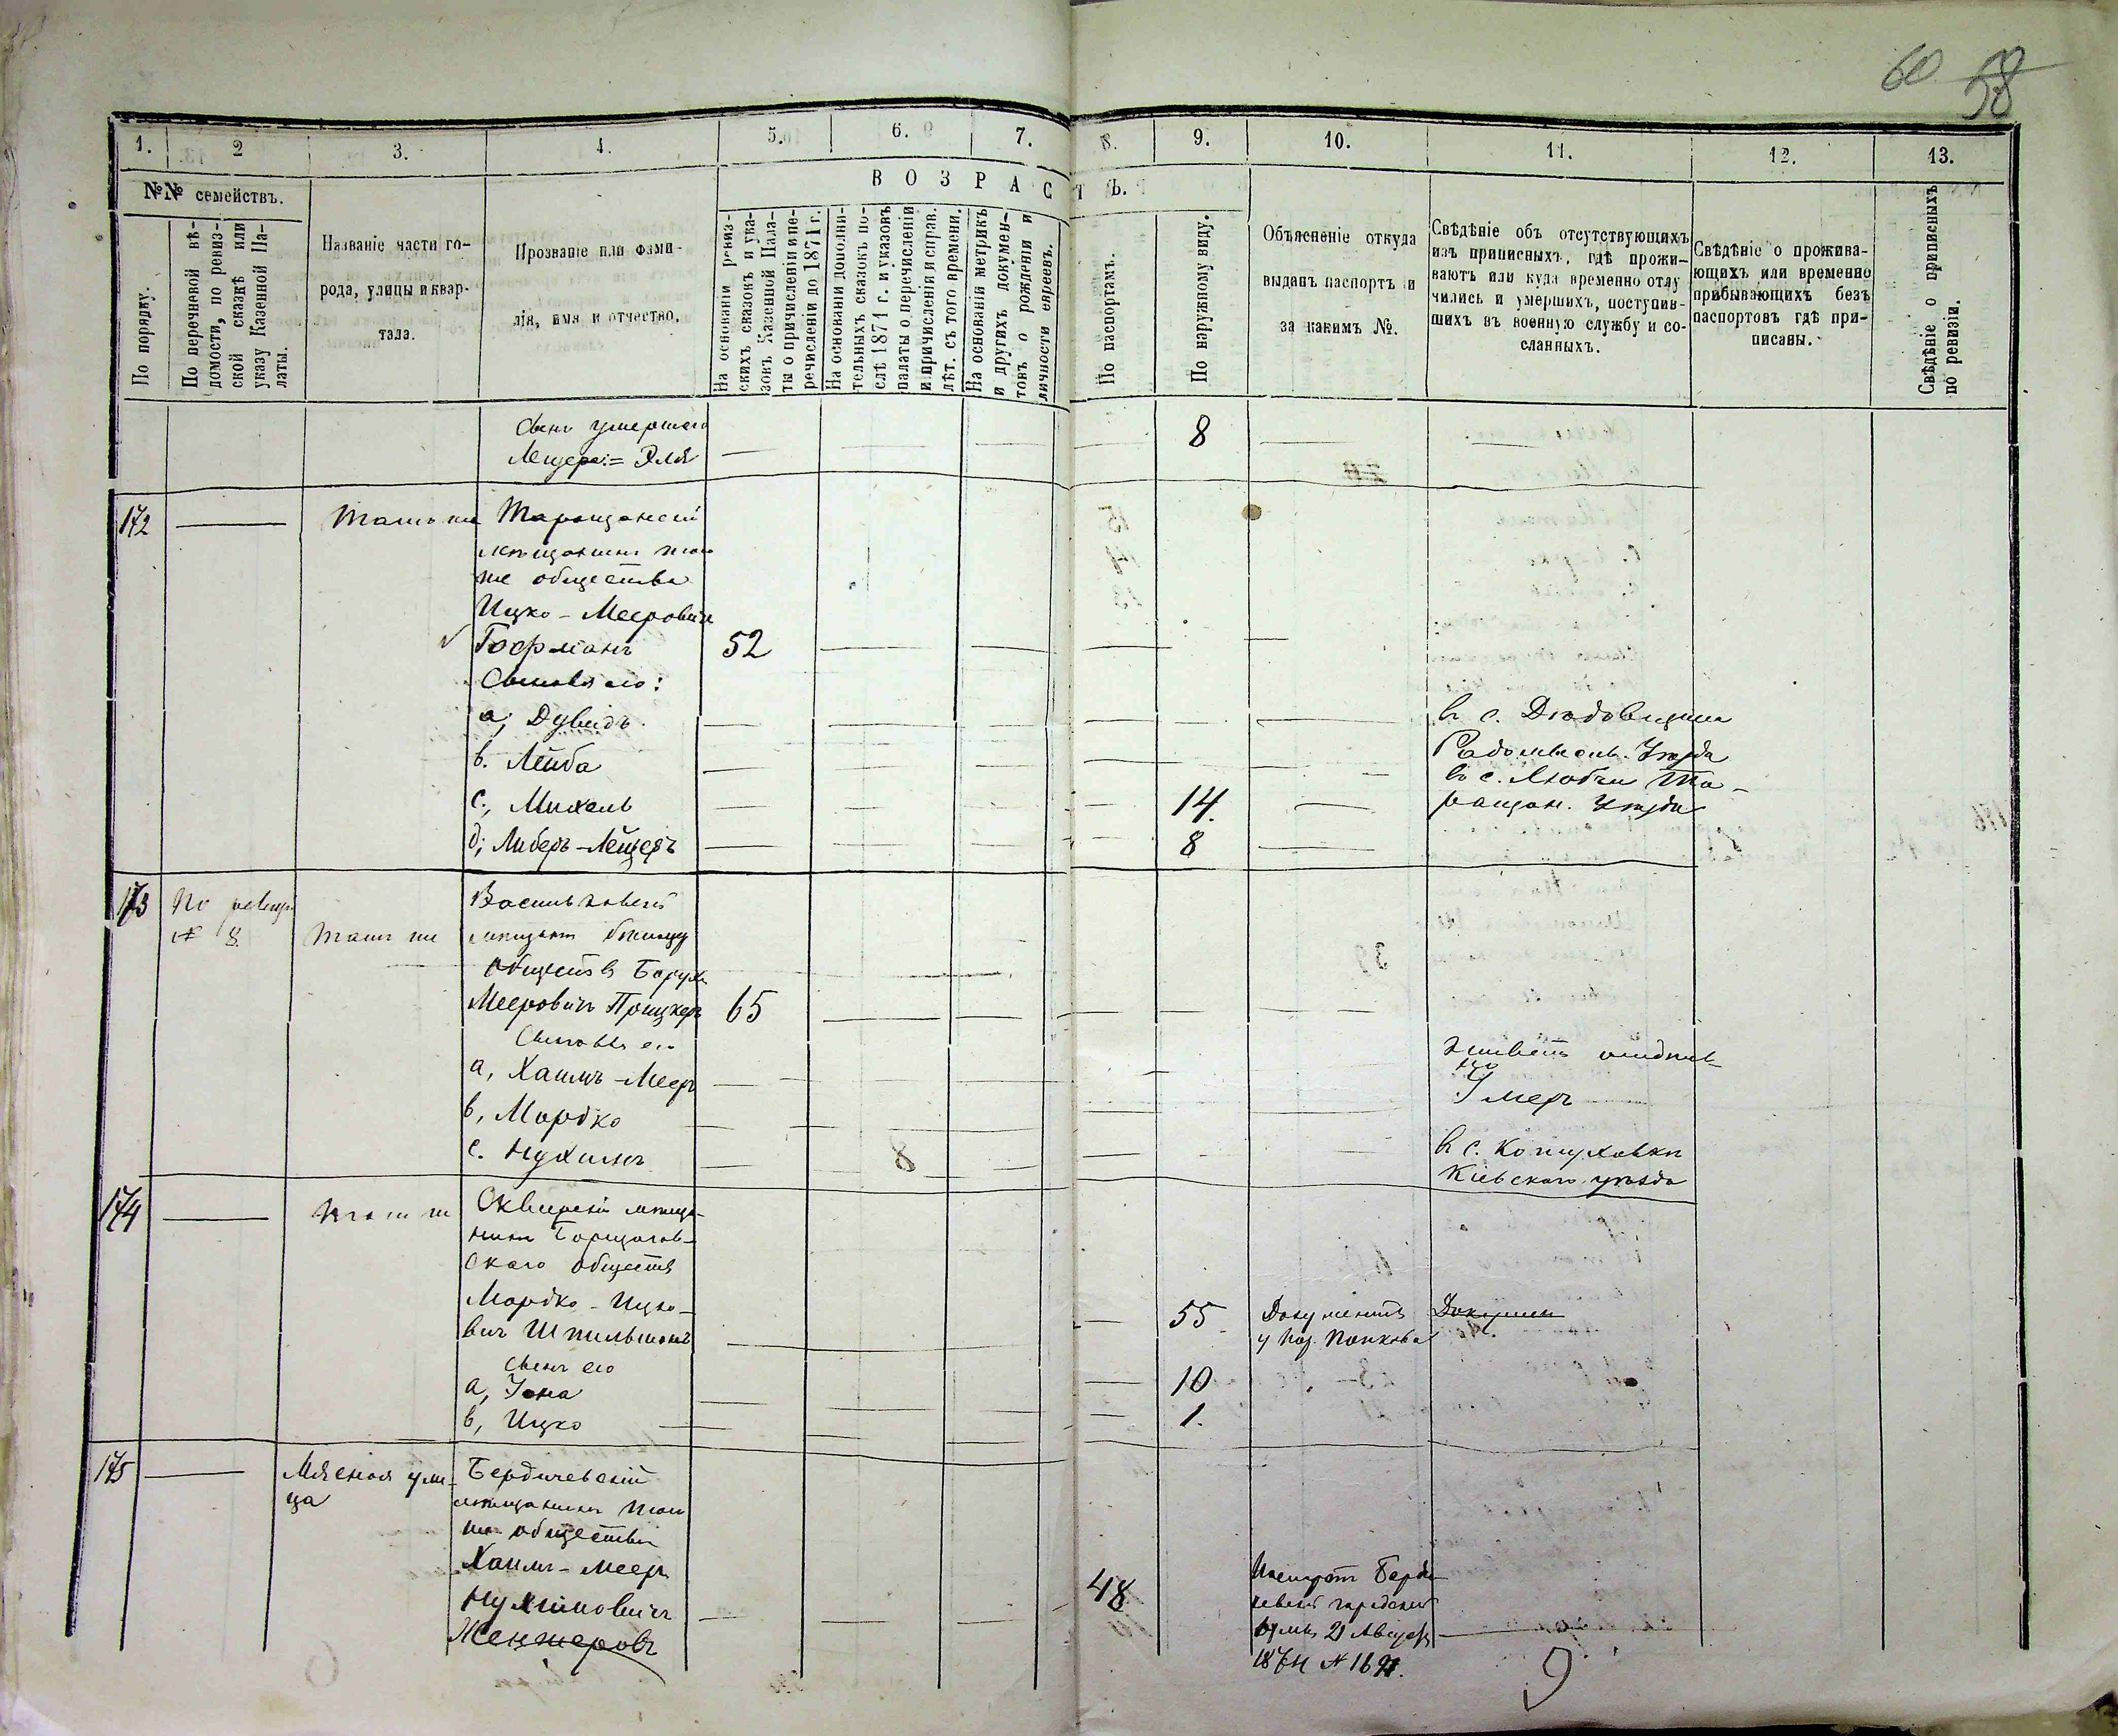 60 58
1. 2 3. 4. 5. 6. 7. 8. 9. 10. 11. 12. 13.
№№ семействъ.
По порядку.
По перечневой вѣ-
домости, по ревиз-
ской сказкѣ или
указу Казенной Па-
латы.
Названіе части го-
рода, улицы и квар-
тала.
Прозваніе или фами-
лія, имя и отчество.
ВОЗРАСТЪ.
На основаніи ревиз-
скихъ сказокъ и ука-
зокъ Казенной Пала-
ты о причисленіи и пе-
речисленіи до 1871 г.
На основаніи дополни-
тельныхъ сказокъ по-
слѣ 1871 г. и указовъ
палаты о перечисленіи
и причисленіи и справ.
лѣт. съ того времени.
На основаніи метрикъ
и другихъ докумен-
товъ о рожденіи и
личности евреевъ.
По паспортамъ.
По наружному виду.
Объясненіе откуда
выданъ паспортъ и
за какимъ №.
Свѣдѣніе объ отсутствующихъ
изъ приписныхъ, гдѣ прожи-
ваютъ или куда временно отлу
чились и умершихъ, поступив-
шихъ въ военную службу и со-
сланныхъ.
Свѣдѣніе о прожива-
ющихъ или временно
прибывающихъ безъ
паспортовъ гдѣ при-
писаны.
Свѣдѣніе о приписныхъ
по ревизіи.
Сынъ умершаго
Лейзера = Эля 8
172 Тамъ же Таращанскій
мѣщанинъ того
же общества
Ицко - Мееровичъ
Гофманъ 52
Сыновья его:
а, Дувидъ въ с. Дюдовщина
Радомысль. Уѣзда
в. Лейба въ с. Любча Та-
ращан. Уѣзда
с., Михель 14.
д; Либеръ - Лейзеръ 8
173 По ревизіи
№ 8 Тамъ же
Васильковскій
мѣщан.
обществ Борухъ
Мееровичъ Прицкеръ 65
Сыновья его
а, Хаимъ - Мееръ живетъ отдѣль-
но
в, Мордко Умеръ
с. Нухимъ 8 въ с.
Кіевскаго уѣзда
174 Тамъ же Сквирскій мѣща-
нинъ Борщагов-
скаго общества
Мордко - Ицко-
вичъ Шпильманъ 55 Документъ
у пов. Панкова
Докумен
сынъ его
а, Iона 10
в, Ицко 1.
175 Мясная ули-
ца
Бердичевскій
мѣщанинъ того
же общества
Хаимъ - Мееръ
Нухимовичъ
Женжеровъ 48
Паспортъ Берди-
чевской городской
думы 21 Августа
187 №
9